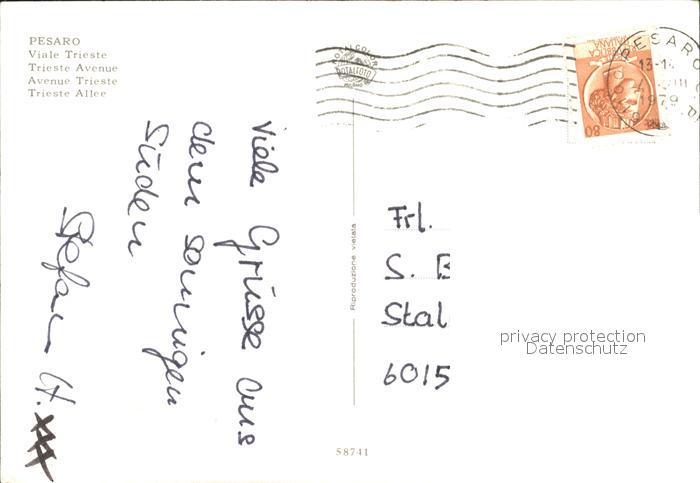 PESARO
Viale Trieste
Trieste Avenue
Avenue Trieste
Trieste Allee
Viele Grüsse aus
dem sonnigen
Süden
Stefan H. xxx
Riproduzione vietata
58741
PESARO
13-1
1979
REPUBBLICA
ITALIANA
80
Frl.
S. B
Stal
6015
privacy protection
Datenschutz